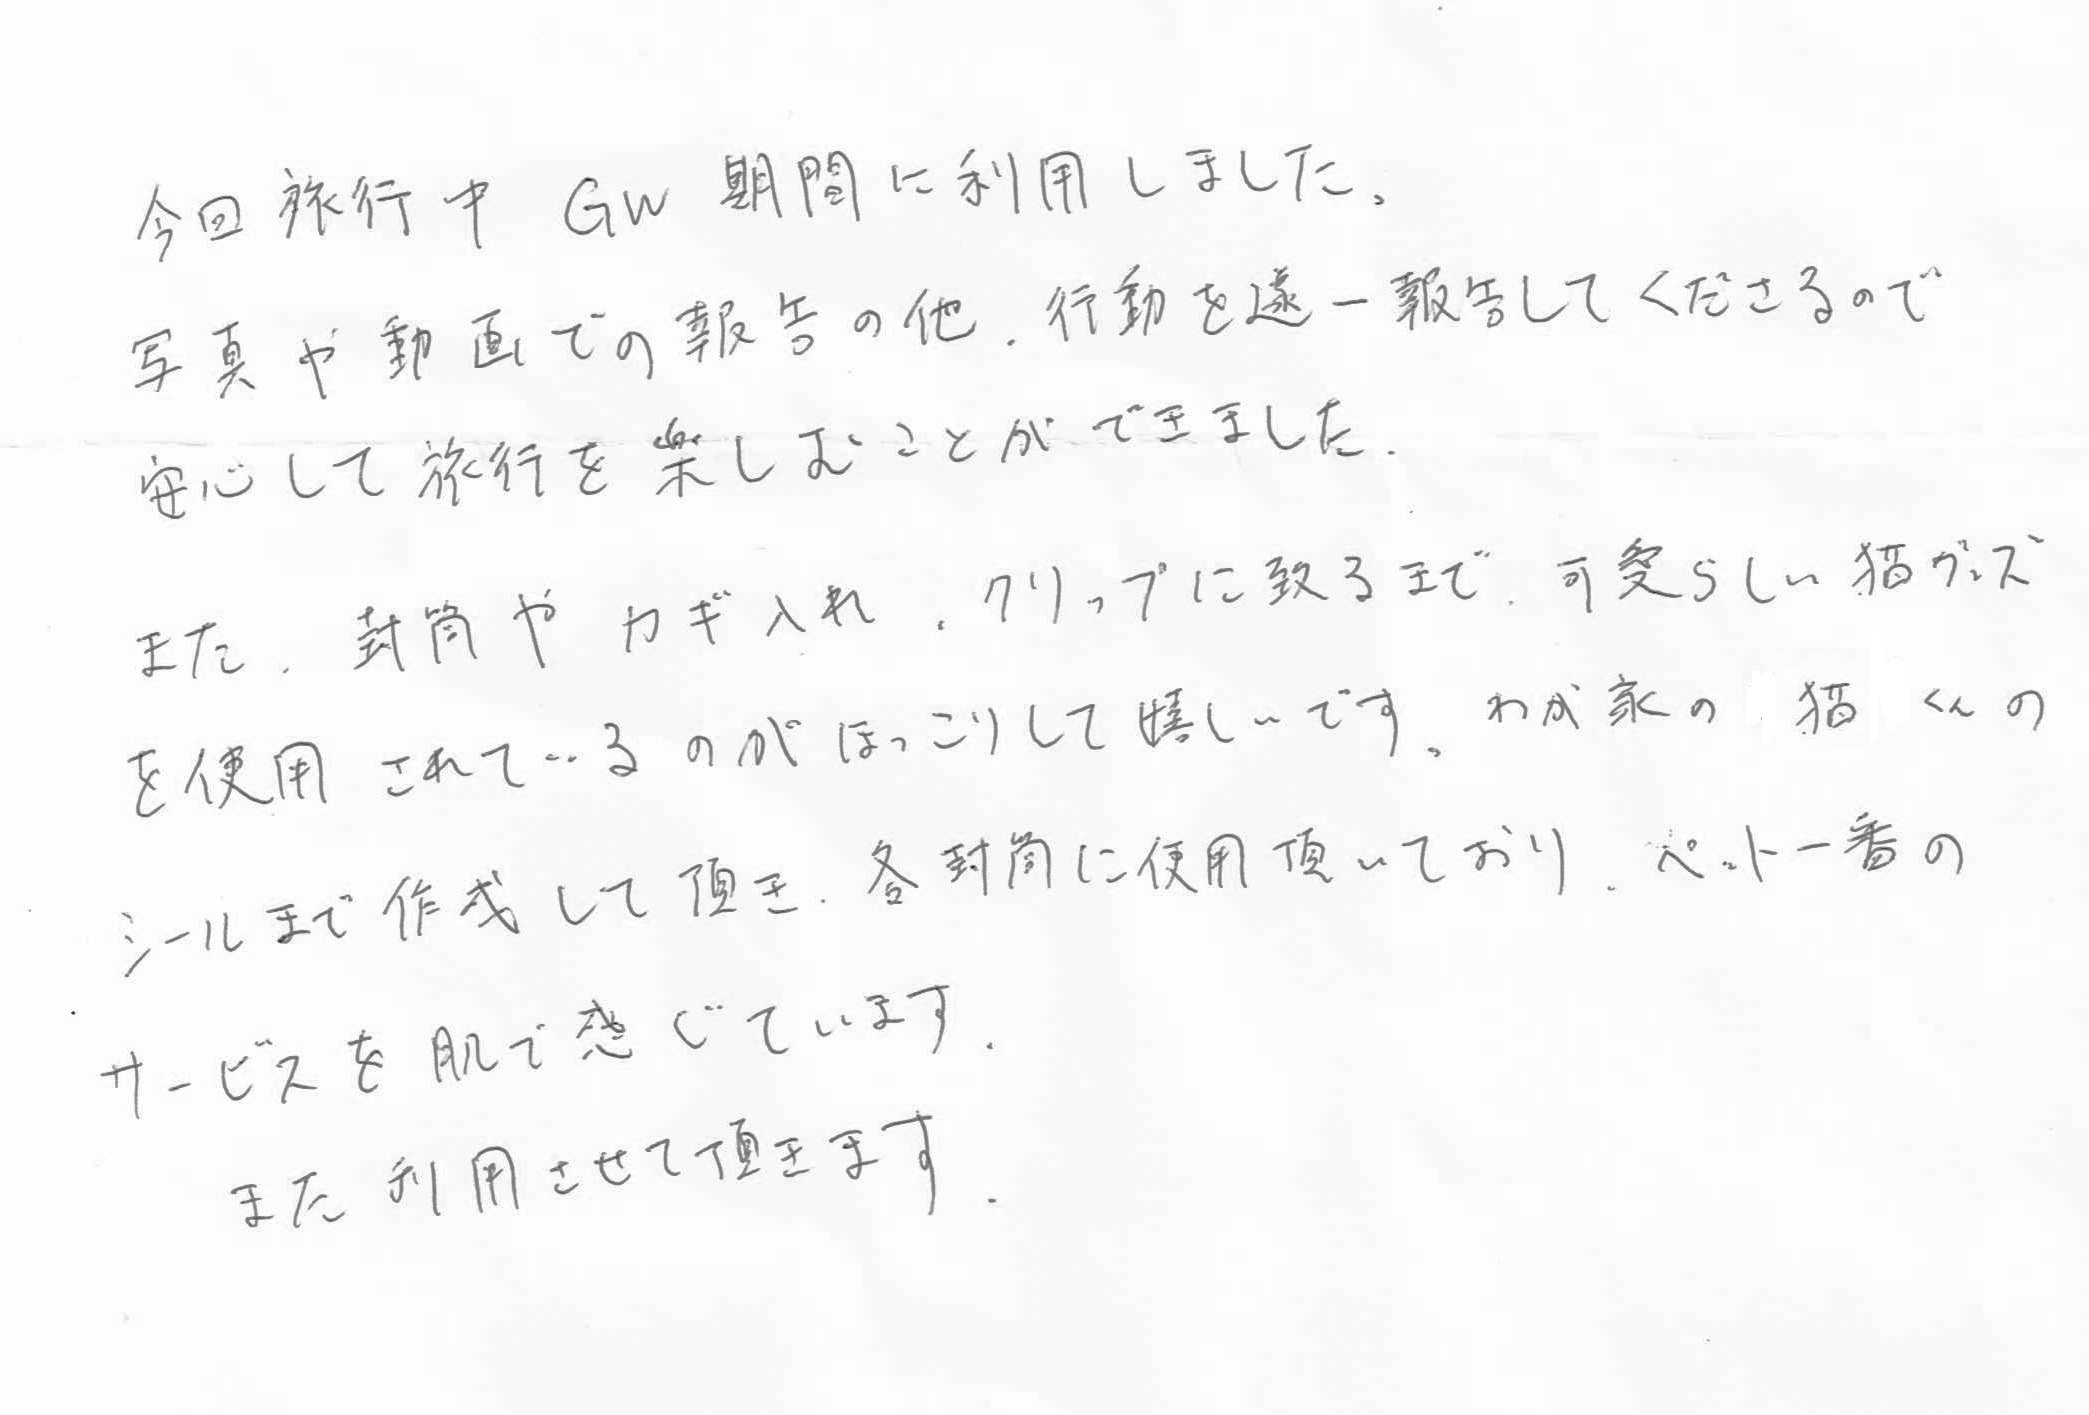 今回旅行中 GW 期間に利用しました。
写真や動画での報告の他、行動を遂一報告してくださるので
安心して旅行を楽しむことができました。
また、封筒やカギ入れ、クリップに致るまで、可愛らしい猫グッズ
を使用されているのがほっこりして嬉しいです。わが家の 猫 くんの
シールまで作成して頂き、各封筒に使用頂いており、ペット一番の
サービスを肌で感じています。
また利用させて頂きます。